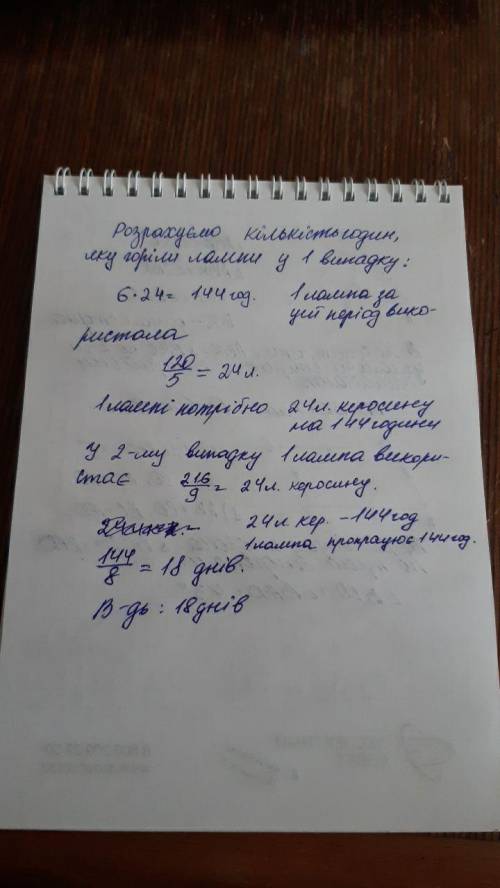 Розрахуємо кількість годин,
яку горіли лампи у 1 випадку:
6·24= 144 год. 1 лампа за
цей період вико-
ристала
120/5 = 24 л.
1 лампі потрібно 24 л. керосину
на 144 години
У 2-му випадку 1 лампа викори-
стає 216/9 = 24 л. керосину.
24 л кер. - 144 год
1 лампа пропрацює 144 год.
144/8 = 18 днів.
В-дь: 18 днів